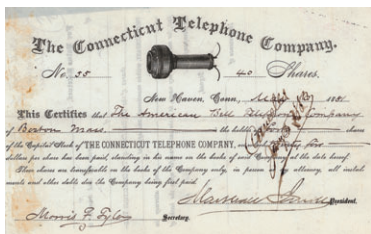 The Connecticut Telephone Company.
No. 35 40 Shares.
New Haven, Conn., 1881
This Certifies that The American Bell Telephone Company
of Boston Mass. is the holder of shares
of the Capital Stock of THE CONNECTICUT TELEPHONE COMPANY, five
dollars per share has been paid, standing in his name on the books of said Company at the date hereof.
These shares are transferable on the books of the Company only, in person or by attorney, all instal-
ments and other debts due the Company being first paid.
Marshall Jewell President.
Morris F. Tyler Secretary.